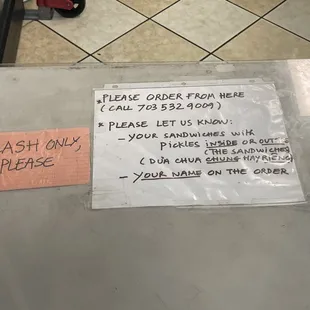 CASH ONLY,
PLEASE
*PLEASE ORDER FROM HERE
(CALL 703 532 9009)
* PLEASE LET US KNOW:
- YOUR SANDWICHES with
pickles INSIDE OR OUT
(THE SANDWICHES
(DƯA CHUA CHUNG HAY RIÊNG)
- YOUR NAME ON THE ORDER